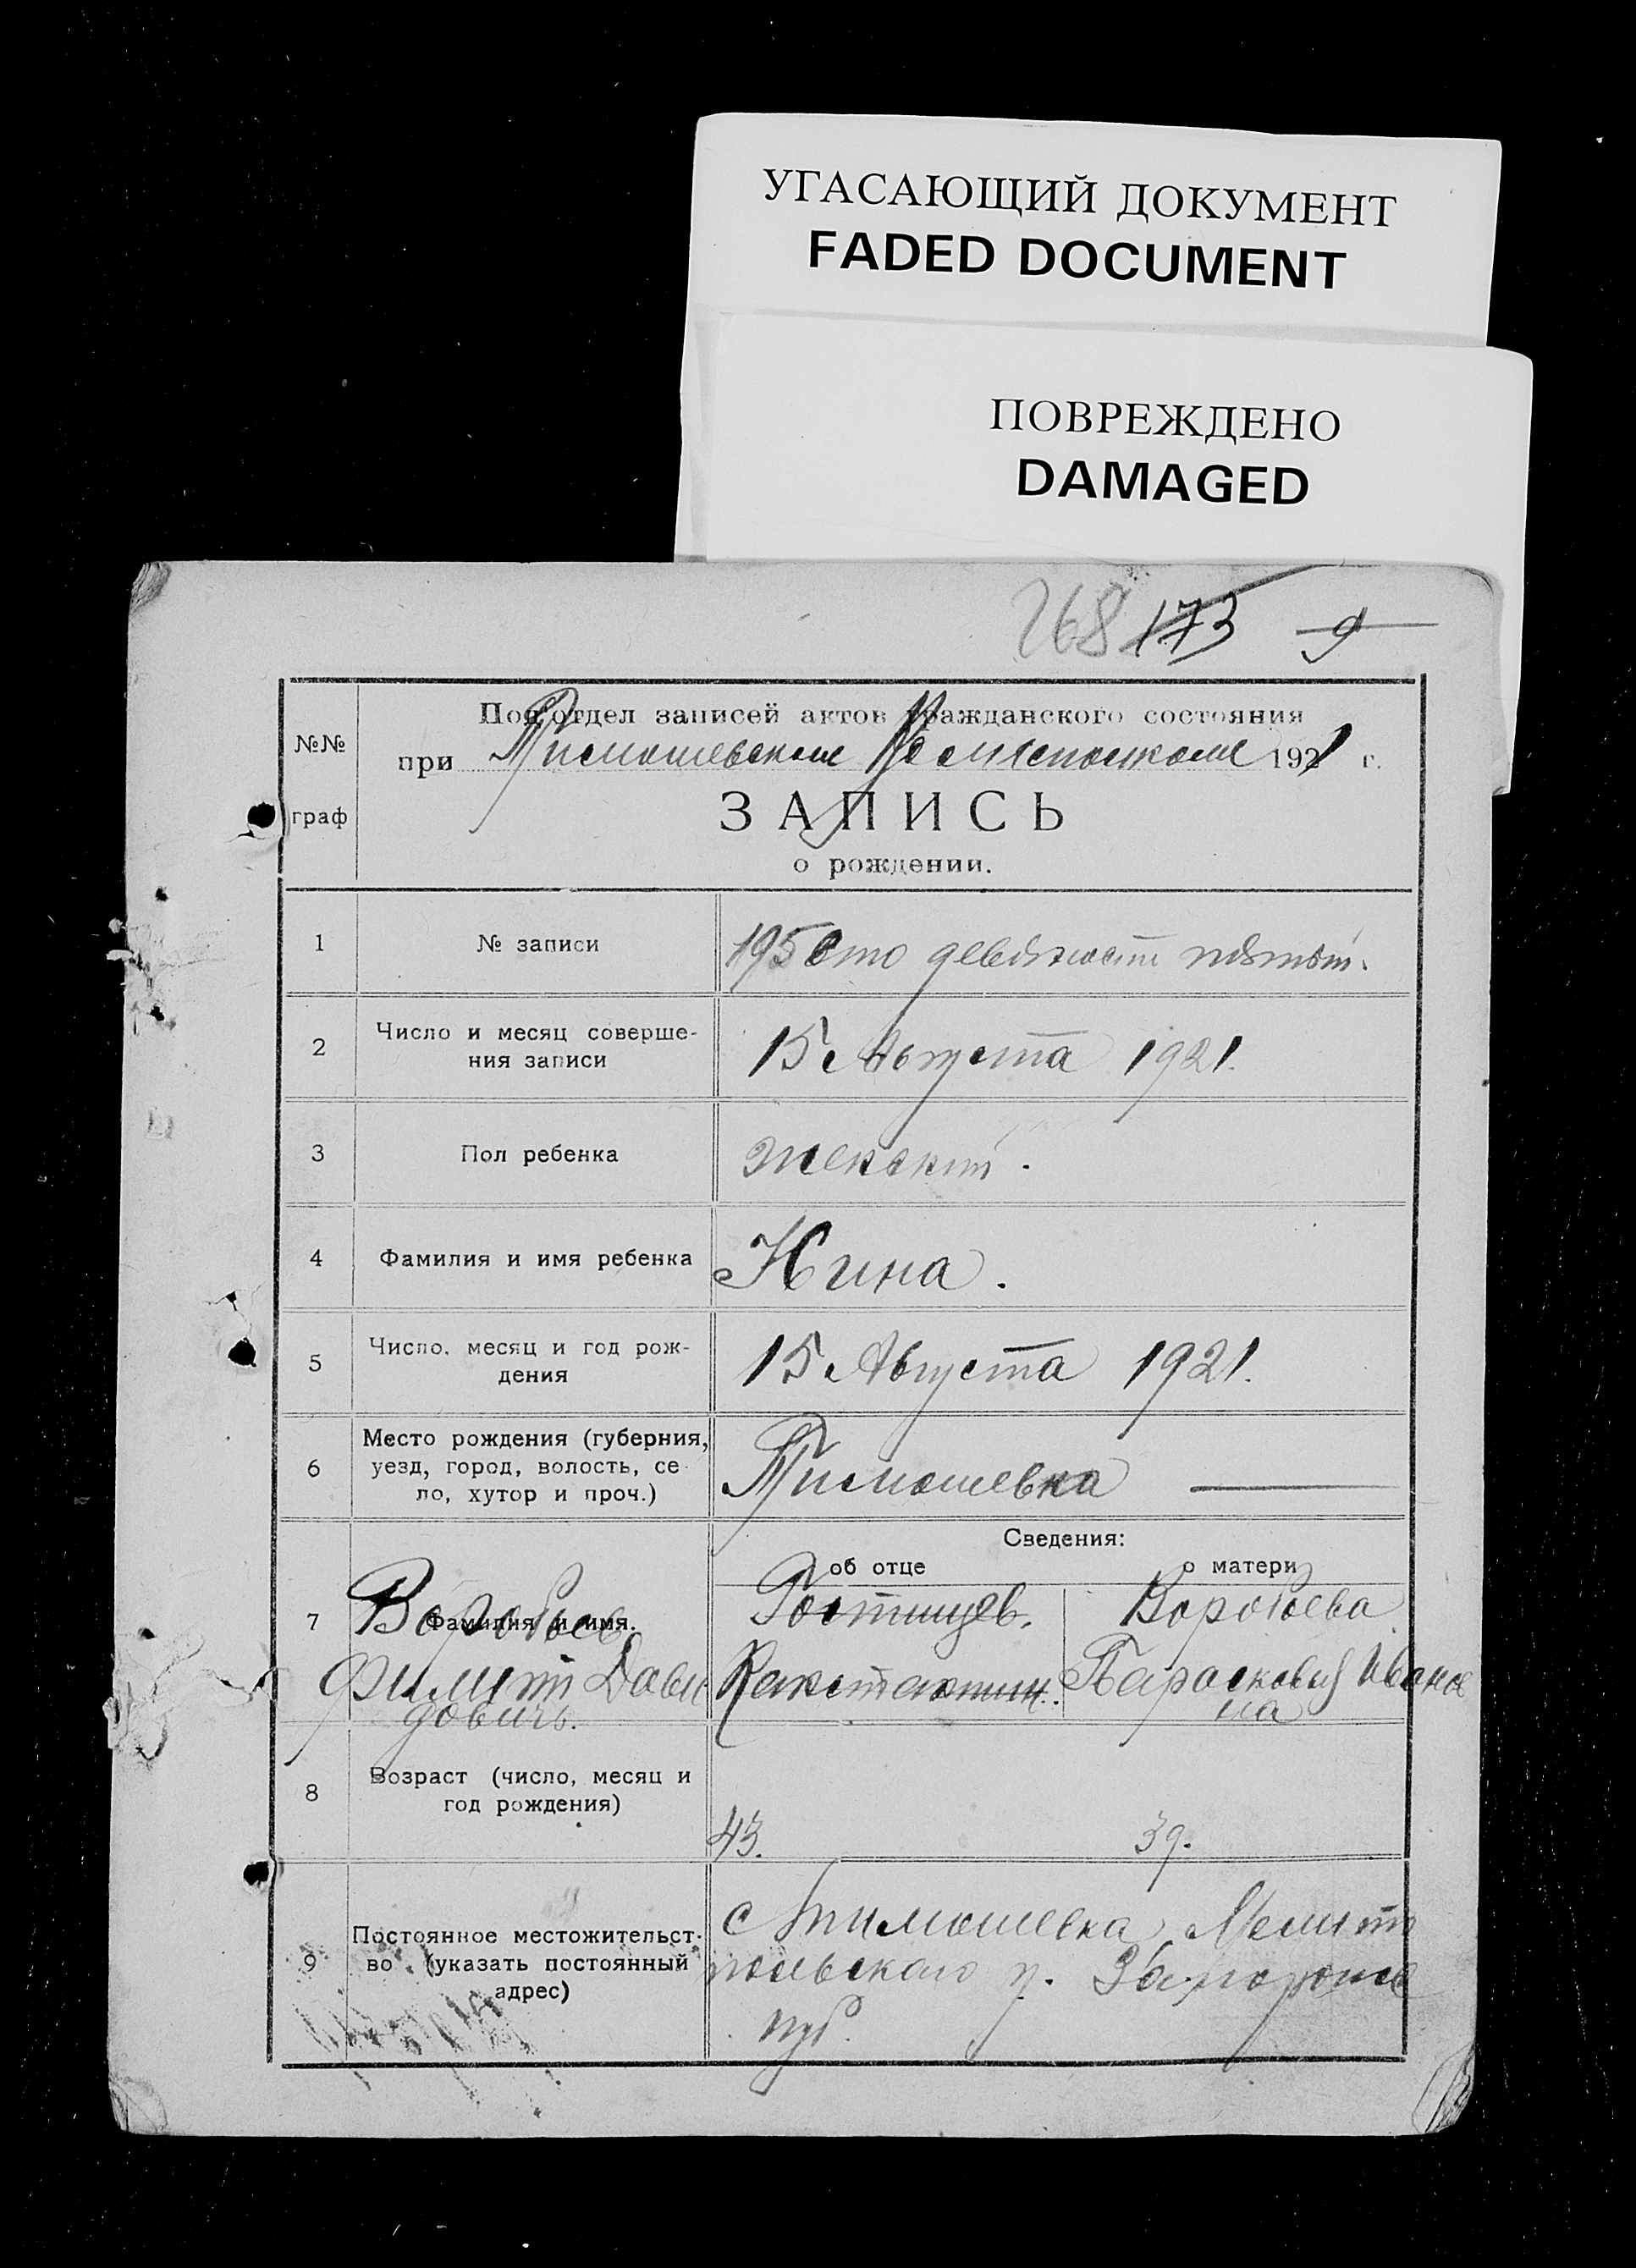 УГАСАЮЩИЙ ДОКУМЕНТ
FADED DOCUMENT
ПОВРЕЖДЕНО
DAMAGED
268 173 9
№№ граф
Подотдел записей актов гражданского состояния
при Тимошевском Волисполкоме 1921 г.
ЗАПИСЬ
о рождении.
1 № записи 195 сто девяносто пятый.
2 Число и месяц соверше-
ния записи 15 Августа 1921.
3 Пол ребенка женский.
4 Фамилия и имя ребенка Нина.
5 Число, месяц и год рож-
дения 15 Августа 1921.
6 Место рождения (губерния,
уезд, город, волость, се-
ло, хутор и проч.) Тимошевка
Сведения:
об отце о матери
7 Фамилия и имя.
Воробьев Гостищев. Воробьева
Филип Дави Парасковья Иванов
дович. на
8 Возраст (число, месяц и
год рождения)
43. 39.
9 Постоянное местожительст-
во (указать постоянный
адрес)
с Тимошевка Мелито
польского у. Запорожс
губ.